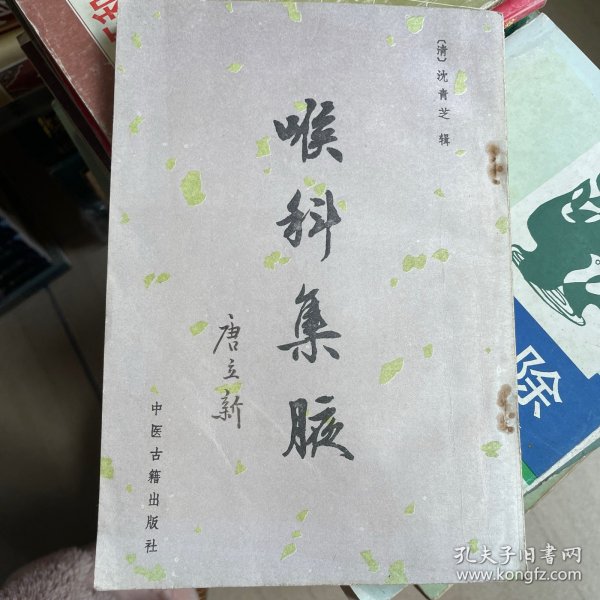 〔清〕沈青芝 辑
喉科集腋
唐立新
中医古籍出版社
除
孔夫子旧书网
www.kongfz.com